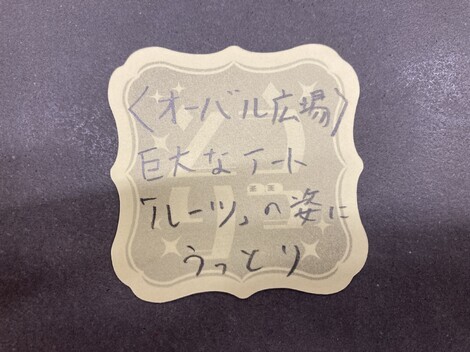 〈オーバル広場〉
巨大なアート
「ルーツ」の姿に
うっとり